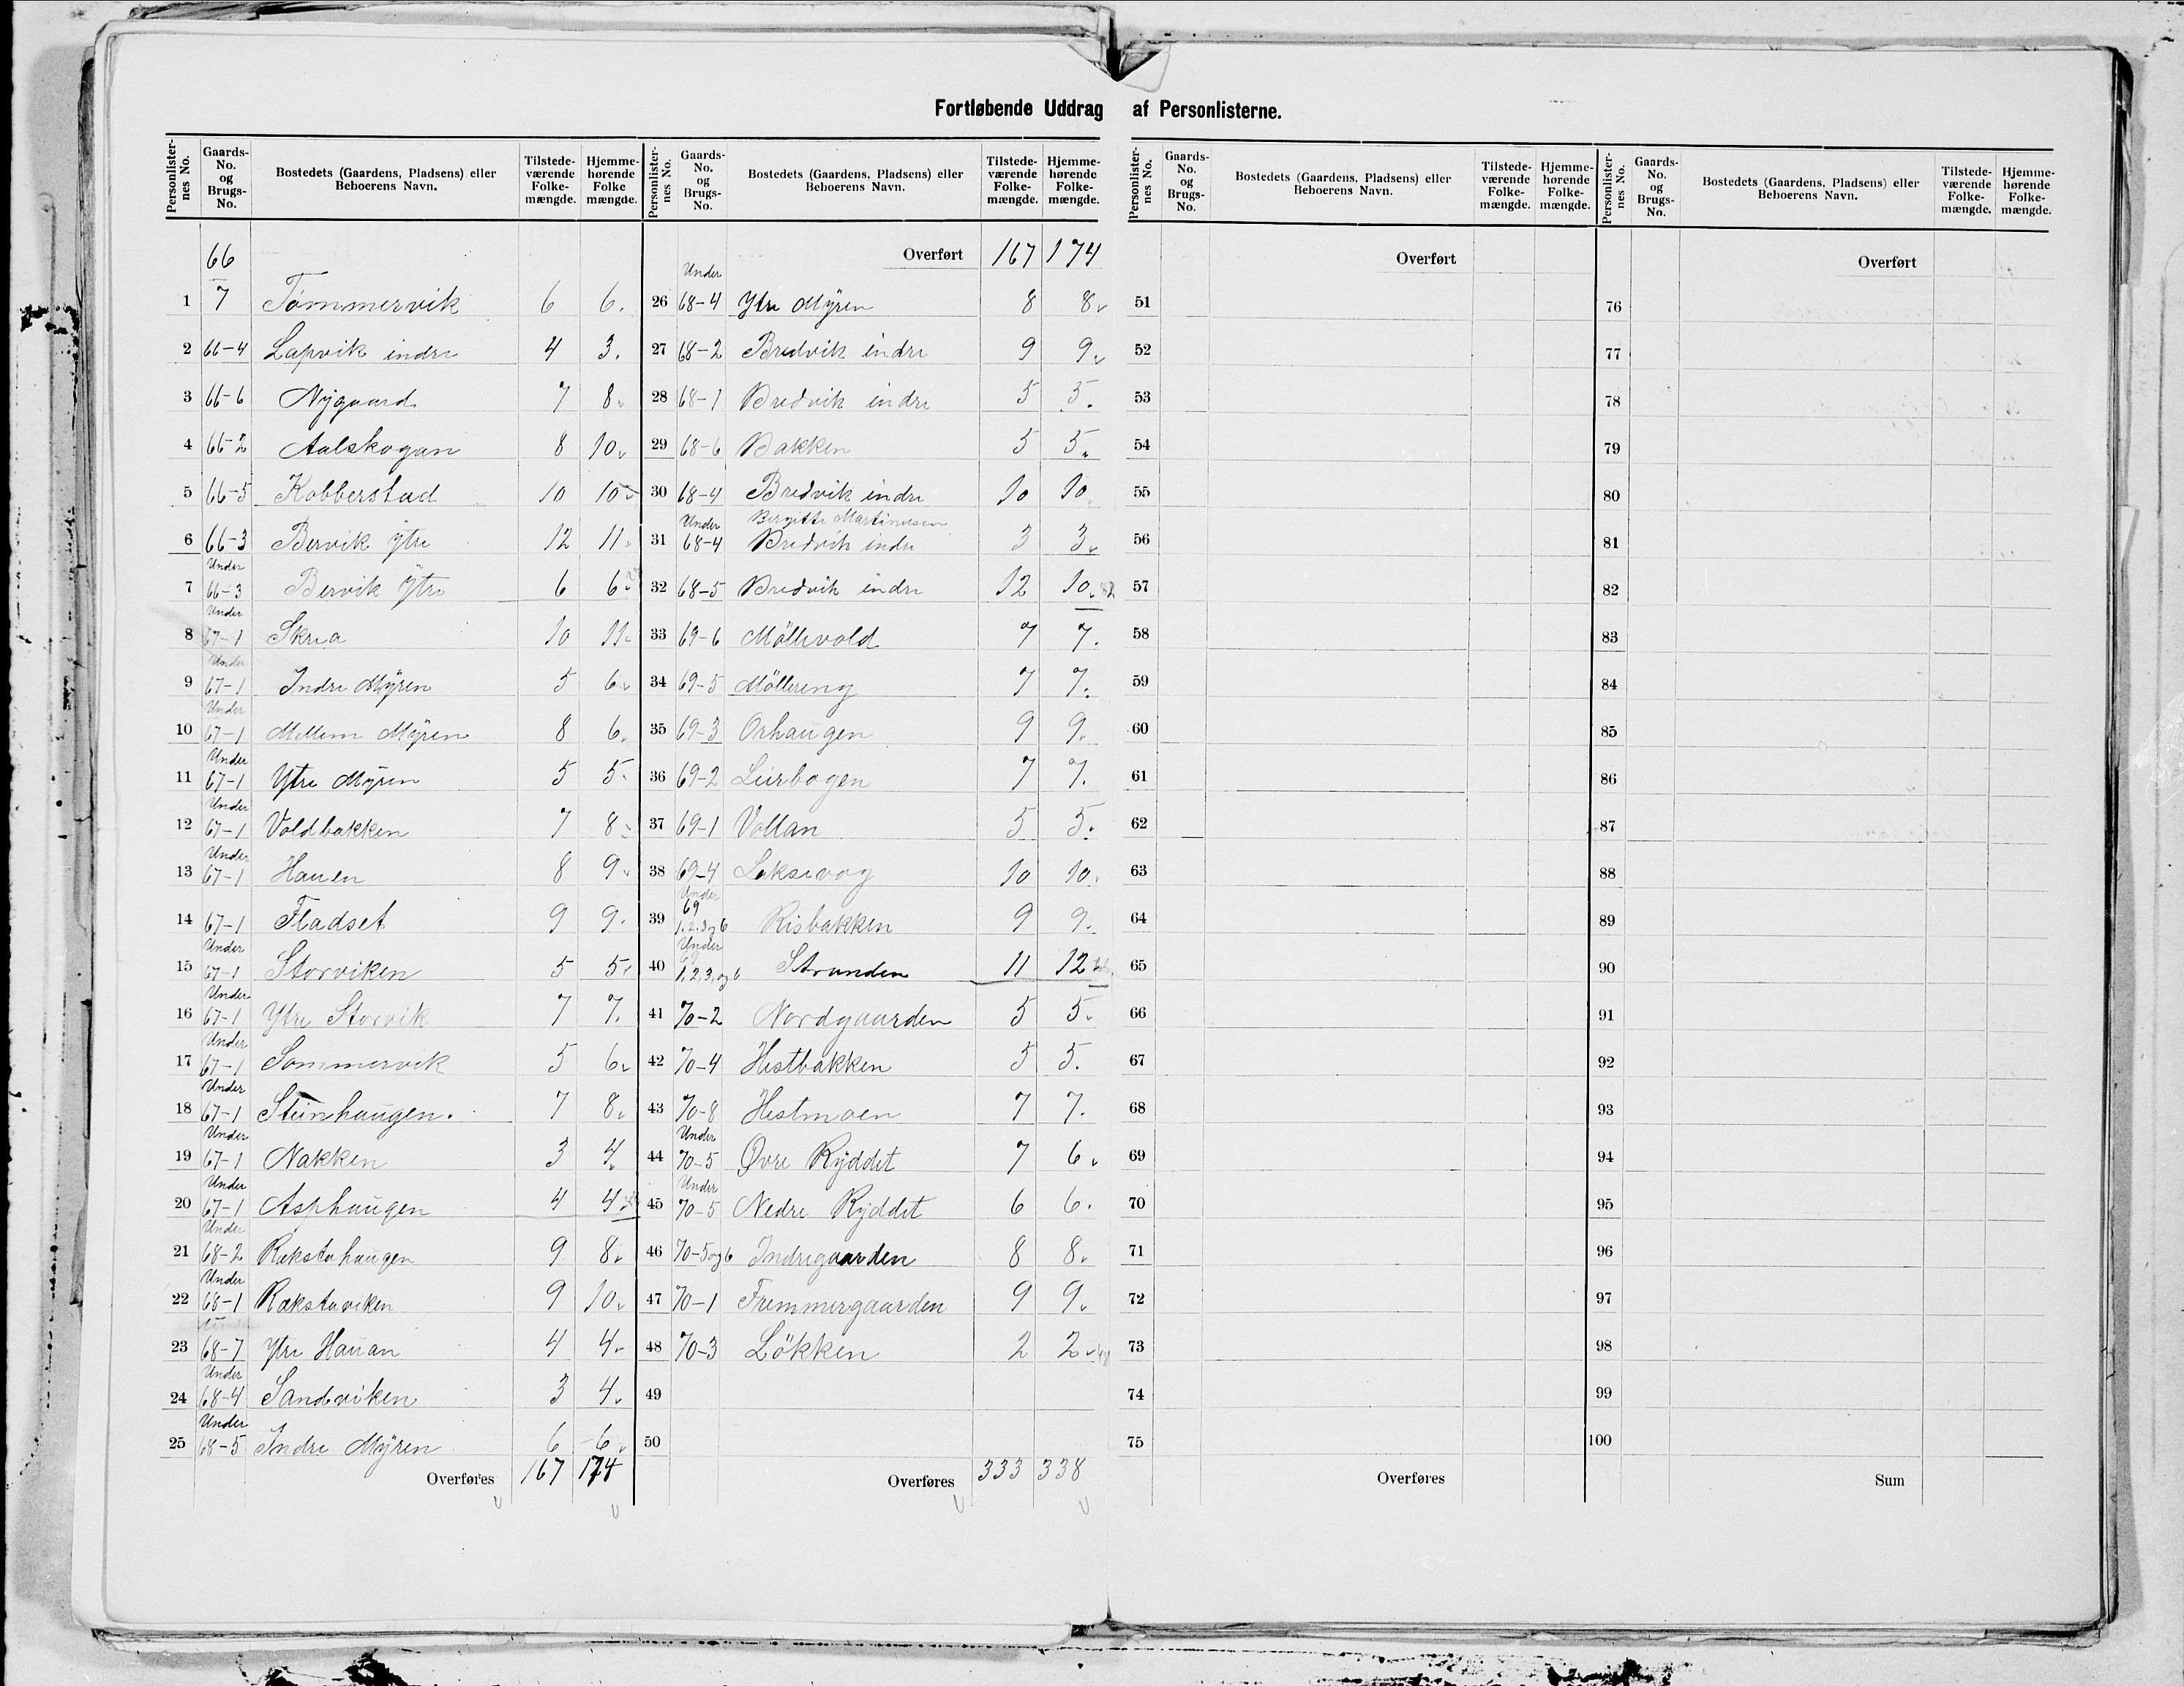 Fortløbende Uddrag af Personlisterne.
Personlisternes No. Gaards-No. og Brugs-No. Bostedets (Gaardens, Pladsens) eller Beboerens Navn. Tilstedeværende Folkemængde. Hjemmehørende Folkemængde.
1 66 7 Tömmervik 6 6.
2 66-4 Lapvik indre 4 3.
3 66-6 Nygaard 7 8
4 66-2 Aalskogan 8 10
5 66-5 Kobberstad 10 10
6 66-3 Bervik ytre 12 11
7 Under 66-3 Bervik Ytre 6 6
8 Under 67-1 Skrea 10 11
9 Under 67-1 Indre Myren 5 6
10 Under 67-1 Mellem Myren 8 6
11 Under 67-1 Ytre Myren 5 5
12 Under 67-1 Voldbakken 7 8
13 Under 67-1 Hauen 8 9
14 67-1 Fladset 9 9
15 Under 67-1 Storviken 5 5
16 Under 67-1 Ytre Storvik 7 7
17 Under 67-1 Sommervik 5 6
18 Under 67-1 Steinhaugen. 7 8
19 Under 67-1 Nakken 3 4
20 Under 67-1 Asphaugen 4 4
21 Under 68-2 Rakstahaugen 9 8
22 Under 68-1 Rakstaviken 9 10
23 68-7 Ytre Hauan 4 4
24 Under 68-4 Sandviken 3 4
25 Under 68-5 Indre Myren 6 6
Overføres 167 174
Personlisternes No. Gaards-No. og Brugs-No. Bostedets (Gaardens, Pladsens) eller Beboerens Navn. Tilstedeværende Folkemængde. Hjemmehørende Folkemængde.
Overført 167 174
26 Under 68-4 Ytre Myren 8 8
27 68-2 Bredvik indre 9 9
28 68-1 Bredvik indre 5 5
29 68-6 Bakken 5 5
30 68-4 Bredvik indre 10 10
Birgitte Martinusen
31 Under 68-4 Bredvik indre 3 3
32 68-5 Bredvik indre 12 10
33 69-6 Möllevold 7 7
34 69-5 Möllereng 7 7
35 69-3 Orhaugen 9 9
36 69-2 Leirbogen 7 7
37 69-1 Vollan 5 5
38 69-4 Laksevog 10 10
39 Under 69 1.2.3 og 6 Risbakken 9 9
40 Under 69 1,2,3, og 6 Stranden 11 12
41 70-2 Nordgaarden 5 5
42 70-4 Hestbakken 5 5
43 70-8 Hestmoen 7 7
44 Under 70-5 Øvre Ryddet 7 6
45 Under 70-5 Nedre Ryddet 6 6
46 70-5 og 6 Indregaarden 8 8
47 70-1 Fremmergaarden 9 9
48 70-3 Lökken 2 2
49
50
Overføres 333 338
Personlisternes No. Gaards-No. og Brugs-No. Bostedets (Gaardens, Pladsens) eller Beboerens Navn. Tilstedeværende Folkemængde. Hjemmehørende Folkemængde.
Overført
51
52
53
54
55
56
57
58
59
60
61
62
63
64
65
66
67
68
69
70
71
72
73
74
75
Overføres
Personlisternes No. Gaards-No. og Brugs-No. Bostedets (Gaardens, Pladsens) eller Beboerens Navn. Tilstedeværende Folkemængde. Hjemmehørende Folkemængde.
Overført
76
77
78
79
80
81
82
83
84
85
86
87
88
89
90
91
92
93
94
95
96
97
98
99
100
Sum